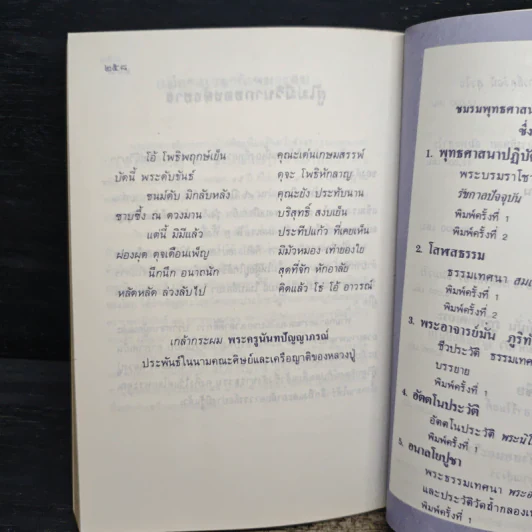 ๒๕๘
โอ้ โพธิพฤกษ์เย็น คุณะเด่นเกษมสรรพ์
บัดนี้ พระดับขันธ์ ดุจะ โพธิหักลาญ
ชนม์ดับ มิกลับหลัง คุณะยัง ประทับนาน
ซาบซึ้ง ณ ดวงมาน บริสุทธิ์ สงบเย็น
แต่นี้ มิมีแล้ว ประทีปแก้ว ที่เคยเห็น
ผ่องผุด ดุจเดือนเพ็ญ มิมัวหมอง เท่ายองใย
นึกนึก อนาถนัก สุดที่จัก หักอาลัย
หลัดหลัด ล่วงลับไป คิดแล้ว โข่ โอ้ อาวรณ์
เกล้ากระผม พระครูนันทปัญญาภรณ์
ประพันธ์ในนามคณะศิษย์และเครือญาติของหลวงปู่
ชมรมพุทธศาสน
ซึ่ง
1. พุทธศาสนาปฏิบัติ
พระบรมราโช
รัชกาลปัจจุบัน
พิมพ์ครั้งที่ 1
พิมพ์ครั้งที่ 2
2. โสพสธรรม
ธรรมเทศนา สมเ
พิมพ์ครั้งที่ 1
พิมพ์ครั้งที่ 2
3. พระอาจารย์มั่น ภูริทั
ชีวประวัติ ธรรมเทศ
บรรยาย
พิมพ์ครั้งที่ 1
4. อัตตโนประวัติ
อัตตโนประวัติ พระนิโ
พิมพ์ครั้งที่ 1
5. อนาลโยบูชา
พระธรรมเทศนา พระอ
และประวัติวัดถ้ำกลองเ
พิมพ์ครั้งที่ 1